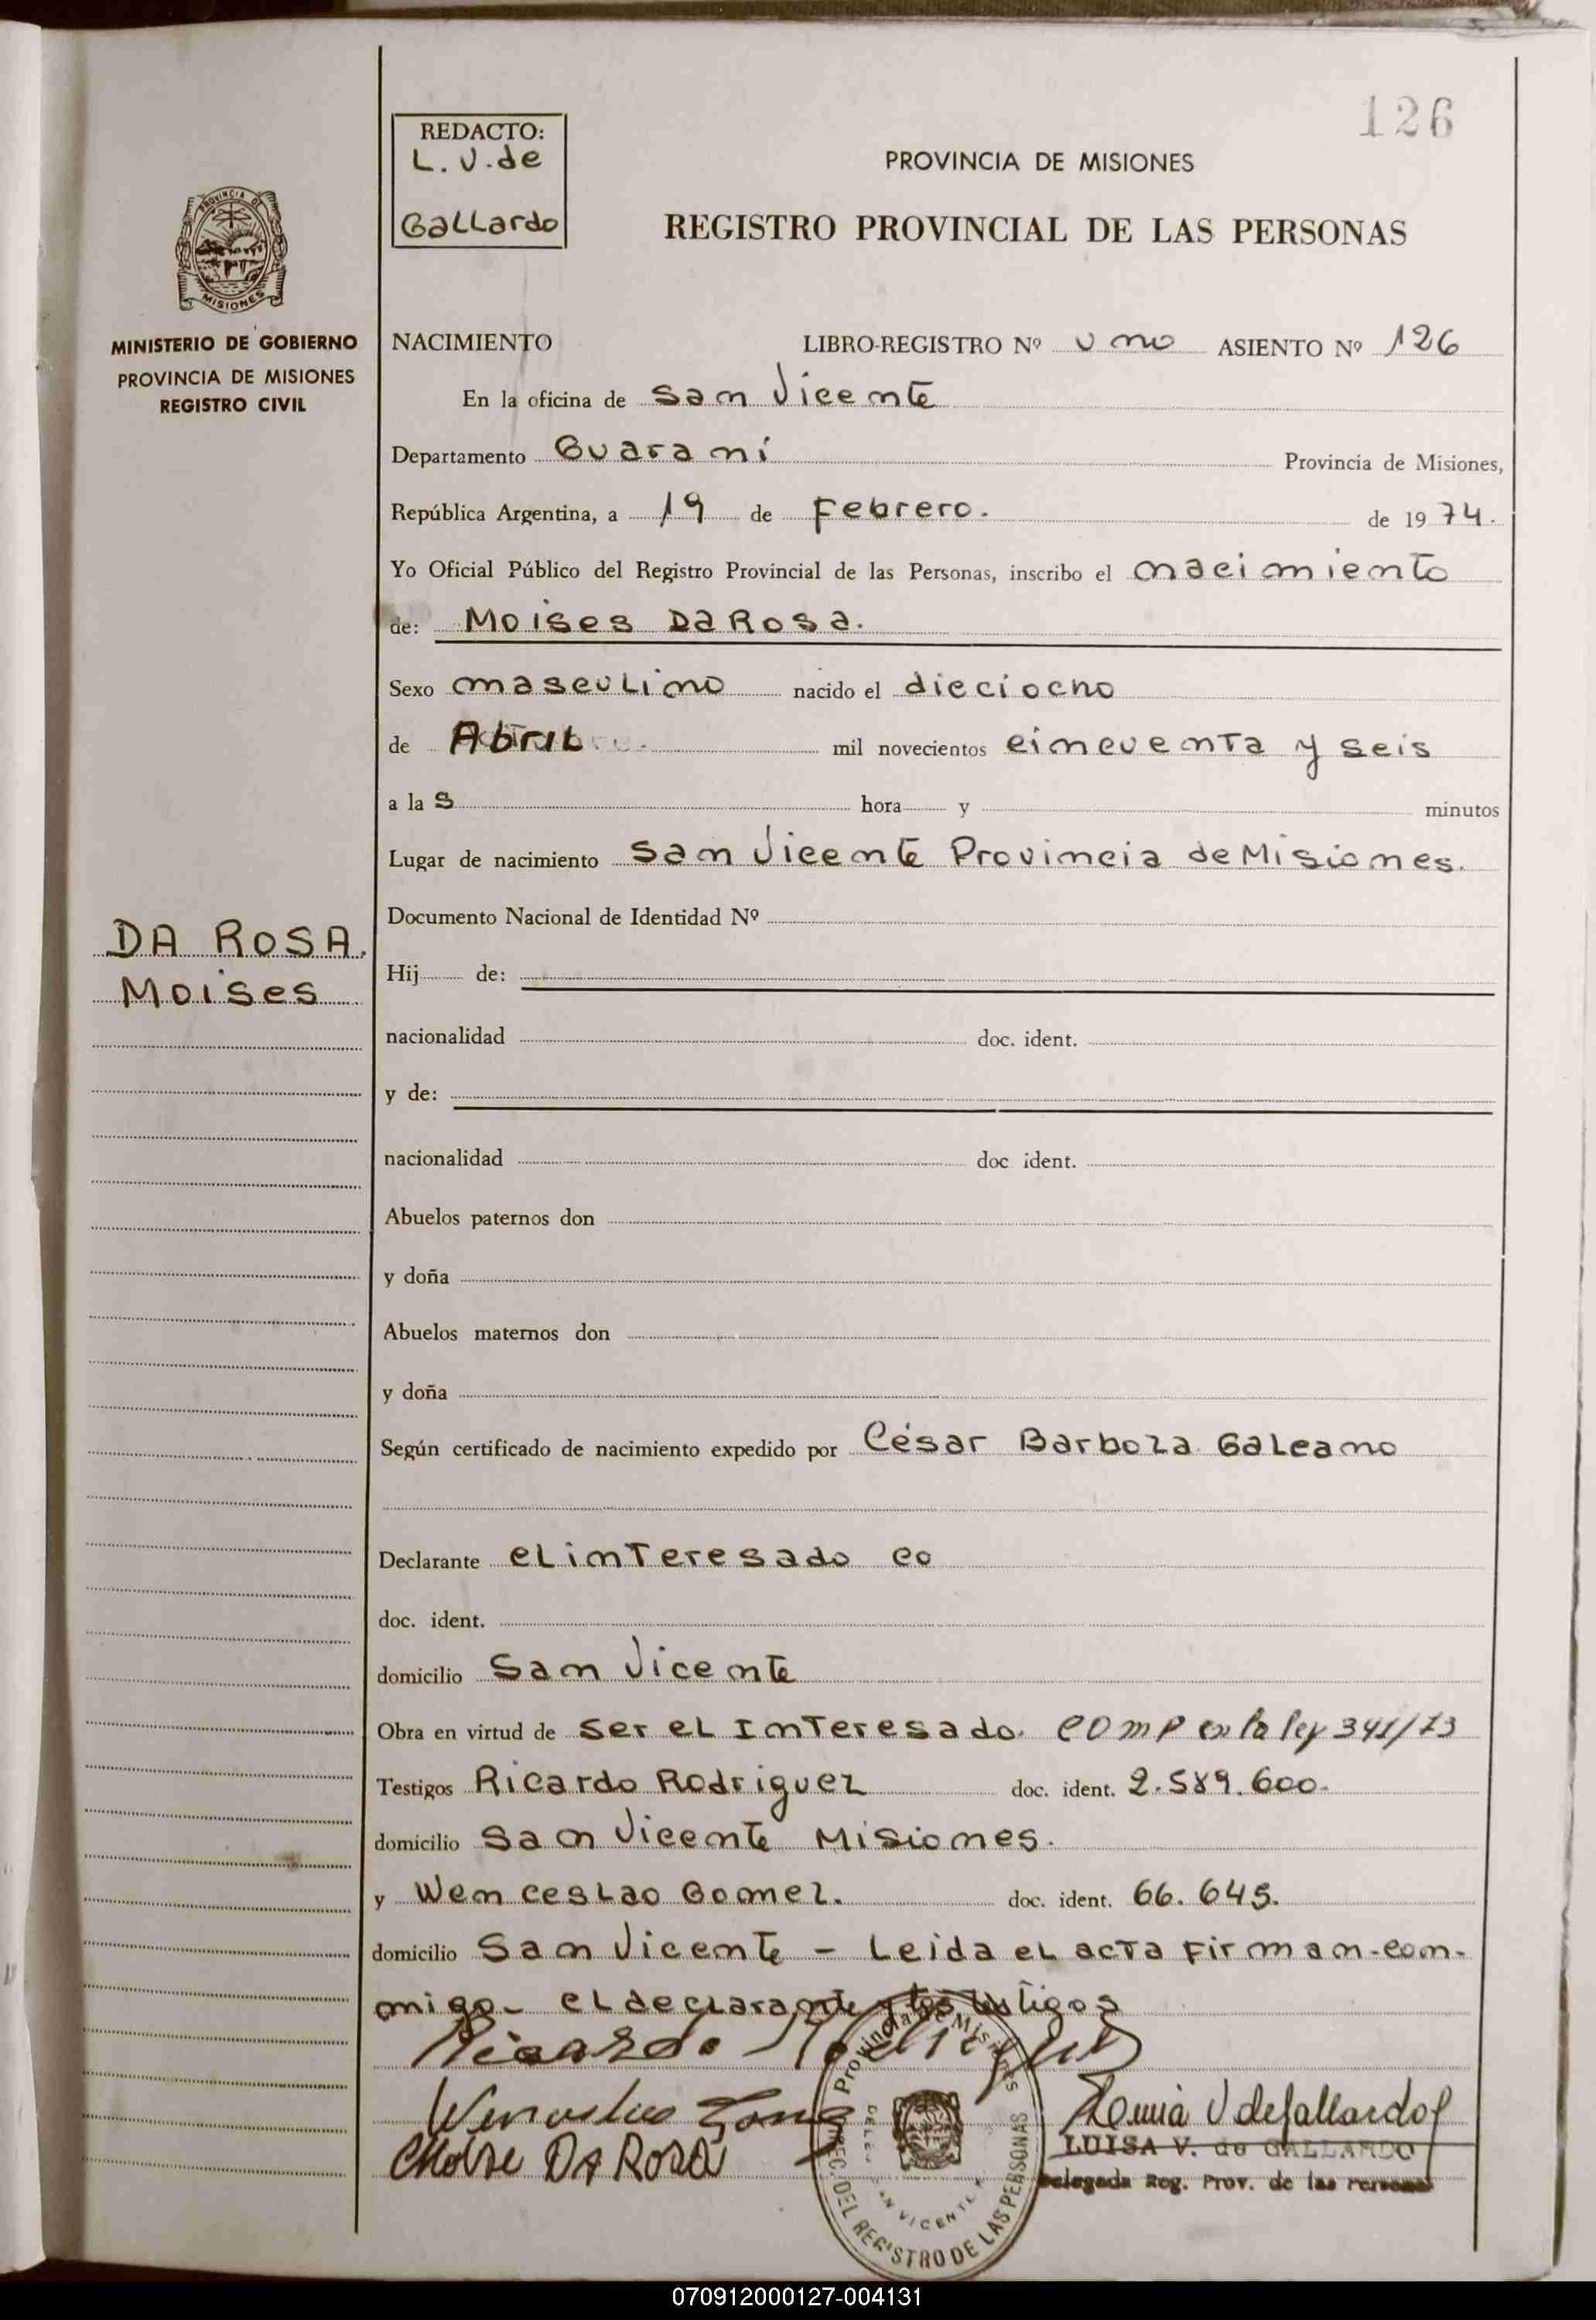 126
REDACTO:
L. V. de
Gallardo
PROVINCIA DE MISIONES
REGISTRO PROVINCIAL DE LAS PERSONAS
PROVINCIA DE
MISIONES
MINISTERIO DE GOBIERNO
PROVINCIA DE MISIONES
REGISTRO CIVIL
NACIMIENTO LIBRO-REGISTRO Nº uno ASIENTO Nº 126
En la oficina de San Vicente
Departamento Guaraní Provincia de Misiones,
República Argentina, a 19 de Febrero. de 19 74.
Yo Oficial Público del Registro Provincial de las Personas, inscribo el nacimiento
de: Moises Da Rosa.
Sexo masculino nacido el dieciocho
de Abril mil novecientos cincuenta y seis
a la s hora y minutos
Lugar de nacimiento San Vicente Provincia de Misiones.
Documento Nacional de Identidad Nº
DA ROSA.
Moises
Hij de:
nacionalidad doc. ident.
y de:
nacionalidad doc. ident.
Abuelos paternos don
y doña
Abuelos maternos don
y doña
Según certificado de nacimiento expedido por César Barboza Galeano
Declarante el interesado co
doc. ident.
domicilio San Vicente
Obra en virtud de ser el Interesado. comp en la ley 341/73
Testigos Ricardo Rodriguez doc. ident. 2.589.600.
domicilio San Vicente Misiones.
y Wenceslao Gomez. doc. ident. 66.645.
domicilio San Vicente - Leida el acta firman con-
migo- el declarante y los testigos
Ricardo Rodriguez
Wenceslao Gomez
Moise Da Rosa
Luisa V de Gallardo
LUISA V. de GALLARDO
Delegada Reg. Prov. de las Personas
Provincia de Misiones
SAN VICENTE
DEL REGISTRO DE LAS PERSONAS
070912000127-004131